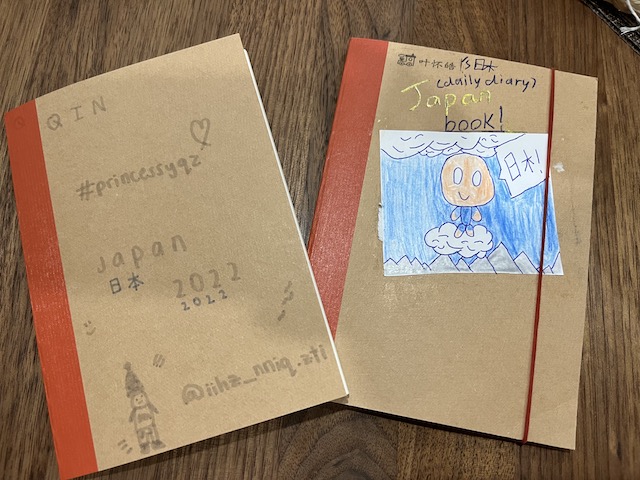 QIN
#princessyqz
Japan
日本
2022
2022
@iihz_nniq.zti
叶怀皓 's 日本
(daily diary)
Japan
book!
日本!